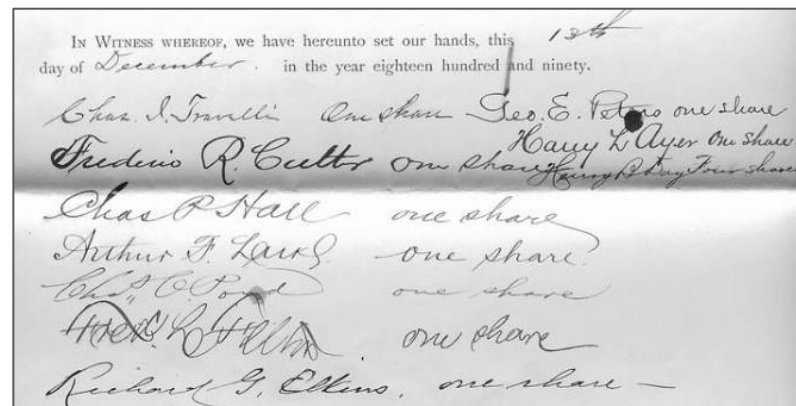 IN WITNESS WHEREOF, we have hereunto set our hands, this 13th
day of December . in the year eighteen hundred and ninety.
Chas. I. Travelli One share Geo. E. Peters one share
Harry L Ayer One share
Frederic R. Cutter one share Henry B Day Four shares
Chas P Hall one share
Arthur F. one share.
Chas. C. Pond one share
Fred. L Felton . one share
Richard G. Elkins. one share —